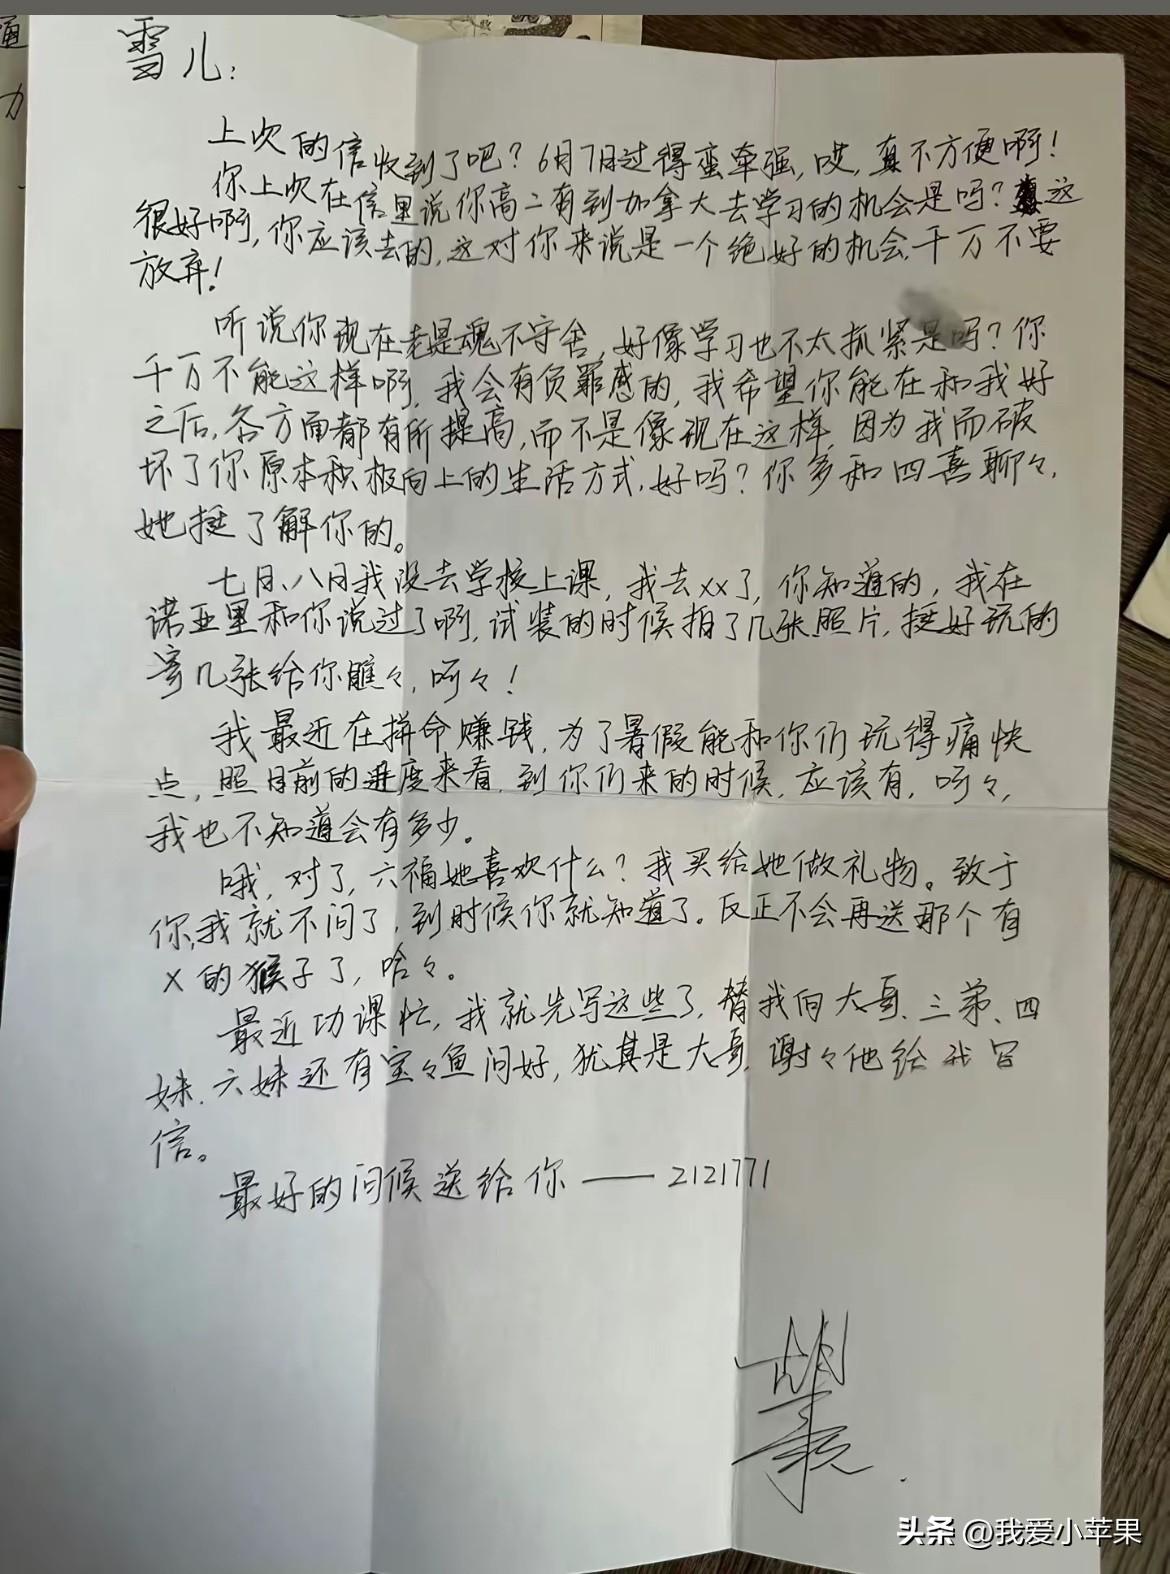 雪儿：
上次的信收到了吧？6月7月过得蛮牵强，哎，真不方便啊！
你上次在信里说你高二有到加拿大去学习的机会是吗？这
很好啊，你应该去的，这对你来说是一个绝好的机会，千万不要
放弃！
听说你现在老是魂不守舍，好像学习也不太抓紧是吗？你
千万不能这样啊，我会有负罪感的，我希望你能在和我好
之后，各方面都有所提高，而不是像现在这样，因为我而破
坏了你原本积极向上的生活方式，好吗？你多和四喜聊々，
她挺了解你的。
七月、八月我没去学校上课，我去xx了，你知道的，我在
诺亚里和你说过了啊，试装的时候拍了几张照片，挺好玩的
寄几张给你瞧々，呵々！
我最近在拼命赚钱，为了暑假能和你们玩得痛快
点，照目前的进度来看，到你们来的时候，应该有，呵々，
我也不知道会有多少。
哦，对了，六福她喜欢什么？我买给她做礼物。致于
你，我就不问了，到时候你就知道了。反正不会再送那个有
X的猴子了，哈々。
最近功课忙，我就先写这些了，替我向大哥、三弟、四
妹、六妹还有宝々鱼问好，犹其是大哥，谢々他给我写
信。
最好的问候送给你——2121771
头条 @我爱小苹果